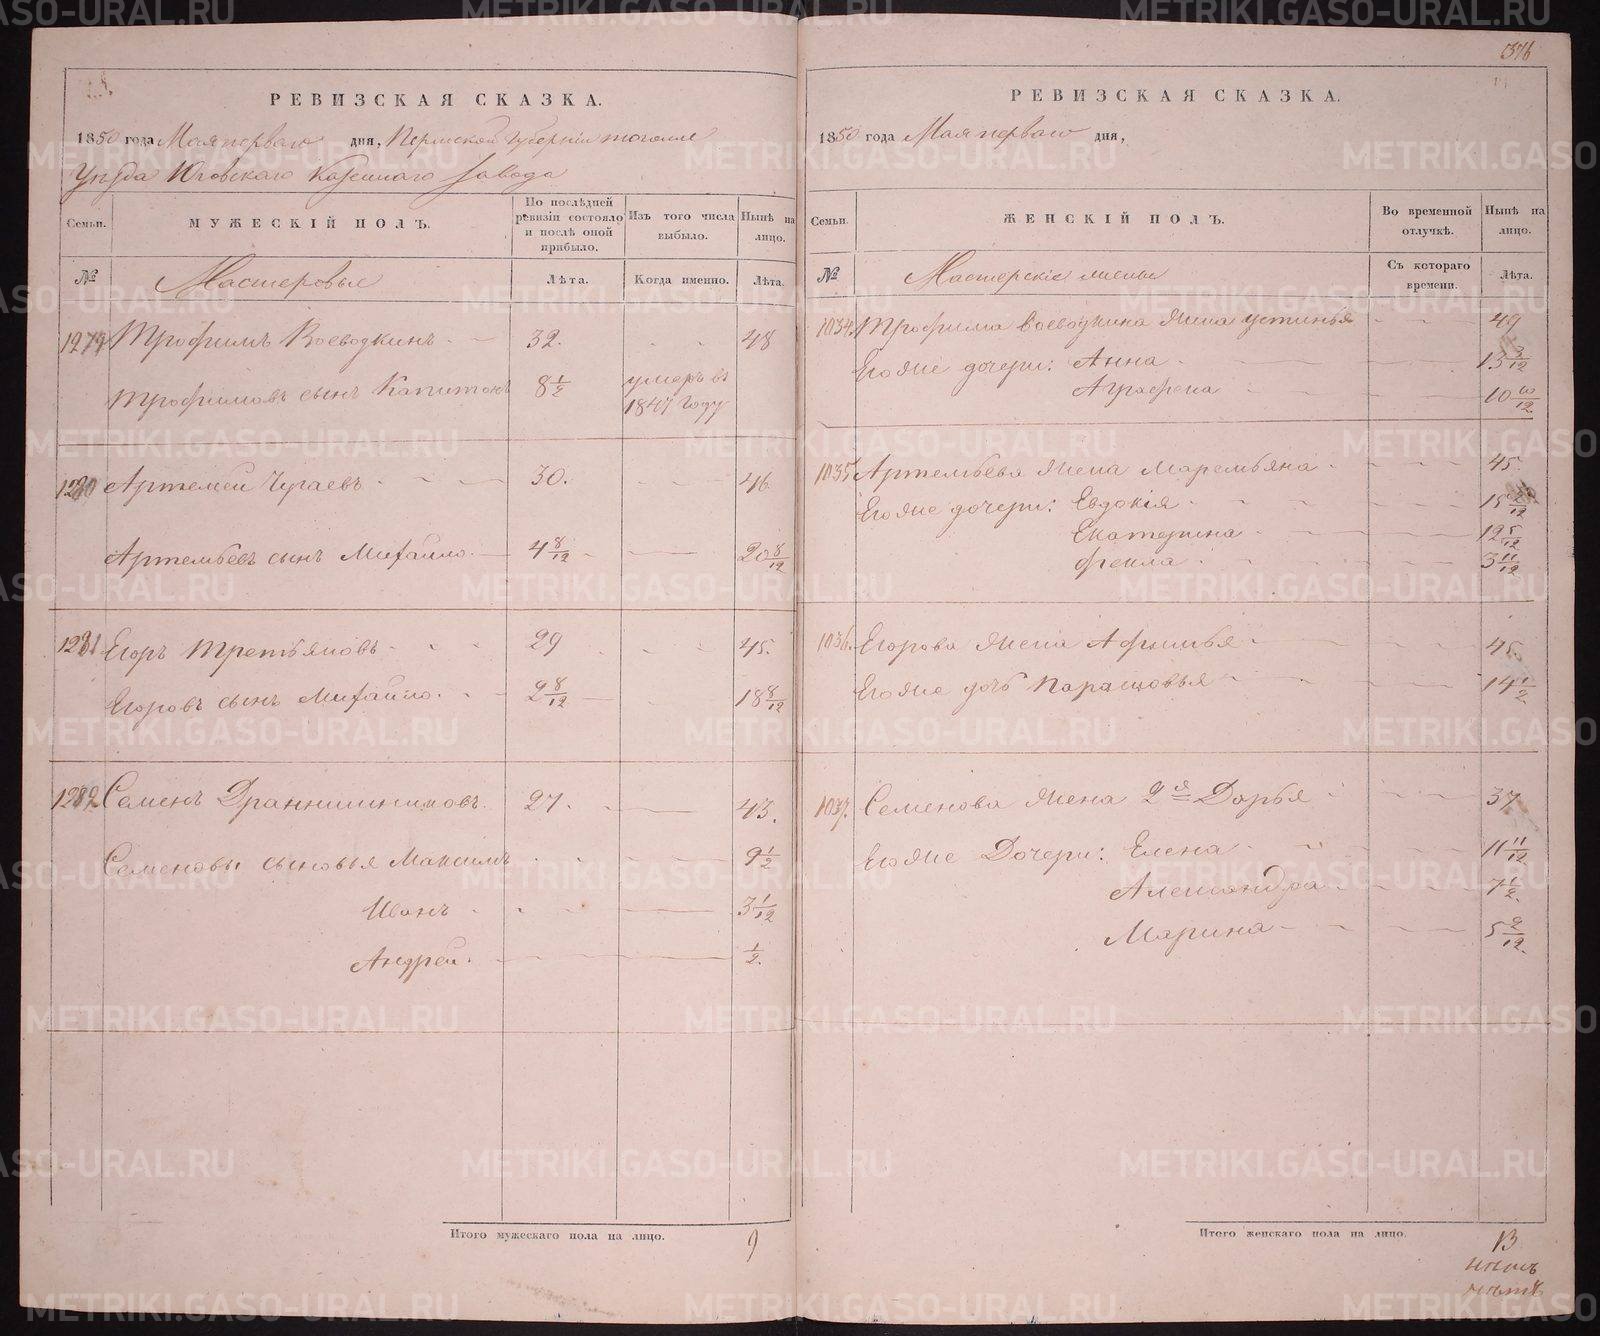 376
РЕВИЗСКАЯ СКАЗКА.
1850 года Мая перваго дня, Пермской Губернiи тогоже
Уѣзда Юговскаго Казеннаго Завода
Семьи.
МУЖЕСКIЙ ПОЛЪ.
По послѣдней ревизiи состояло и послѣ оной прибыло.
Изъ того числа выбыло.
Нынѣ на лицо.
№ Мастеровые Лѣта. Когда именно. Лѣта.
1279 Трофимъ Воеводкинъ 32. 48
Трофимовъ сынъ Капитонъ 8 1/2 умеръ въ 1847 году
1280 Артемей Чугаевъ 30. 46
Артемьевъ сынъ Михайло 4 8/12 20 8/12
1281 Егоръ Третьяковъ 29 45.
Егоровъ сынъ Михайло. 2 8/12 18 8/12
1282 Семенъ Дранишниковъ 27. 43.
Семеновы сыновья Максимъ 9 1/2
Иванъ 3 1/12
Андрей. 1/2.
Итого мужескаго пола на лицо. 9
РЕВИЗСКАЯ СКАЗКА.
1850 года Мая перваго дня,
Семьи.
ЖЕНСКIЙ ПОЛЪ.
Во временной отлучкѣ.
Нынѣ на лицо.
№ Мастерскiе жены Съ котораго времени. Лѣта.
1034. Трофима Воеводкина жена Устинья 49
Его же дочери: Анна 13 3/12
Аграфена 10 10/12
1035. Артемьева жена Маремьяна 45.
Его же дочери: Евдокiя 15 2/12
Екатерина 12 5/12
Фекла 3 11/12
1036. Егорова жена Афимья 45.
Его же дочь Парасковья 14 1/2
1037. Семенова жена 2я Дарья 37
Его же Дочери: Елена 11 11/12
Александра 7 1/2.
Марина 5 2/12.
Итого женскаго пола на лицо. 13
METRIKI.GASO-URAL.RU